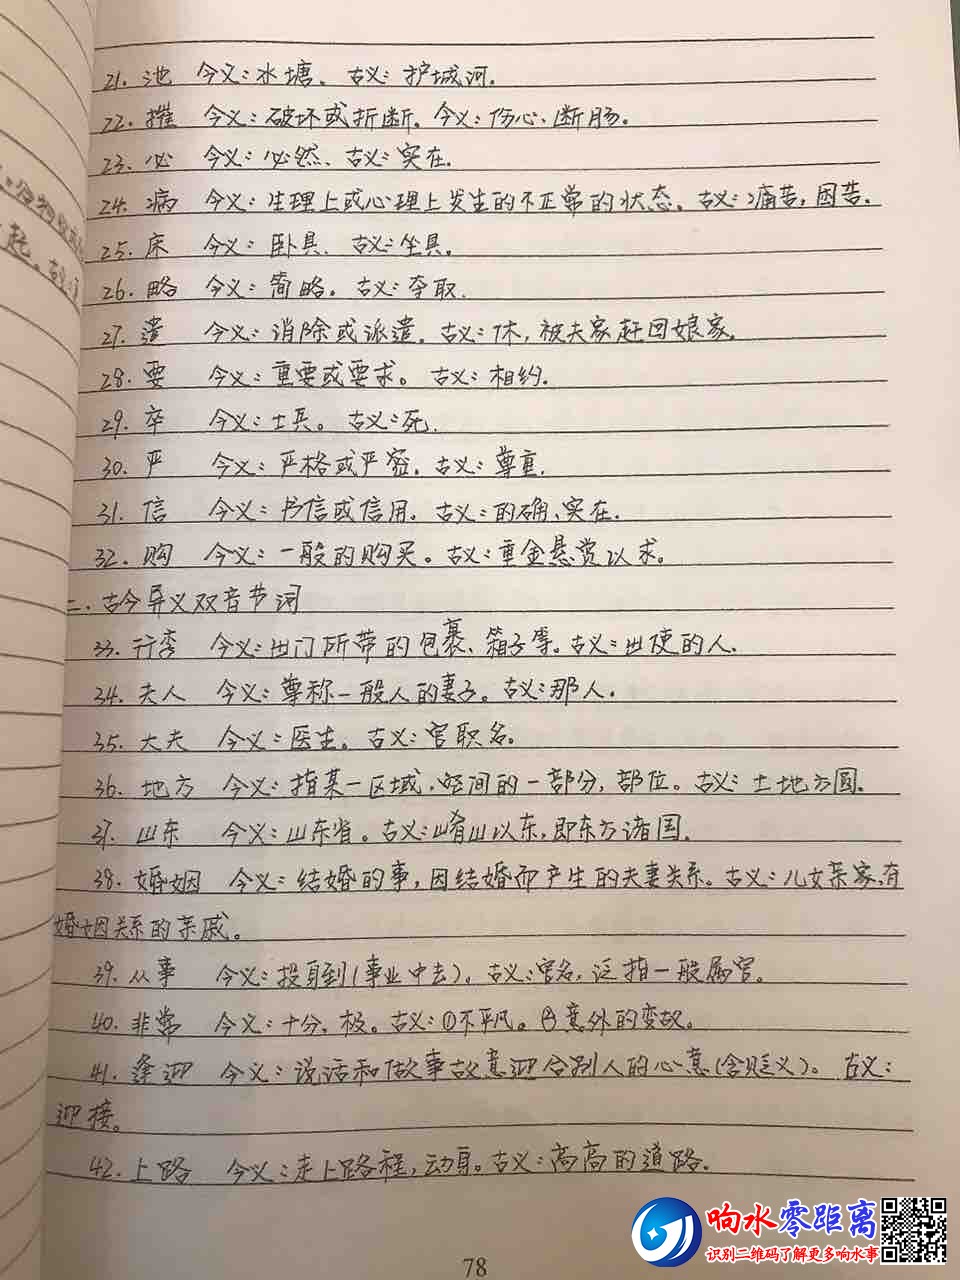 21. 池 今义：水塘、古义：护城河.
22. 摧 今义：破坏或折断。今义：伤心、断肠。
23. 必 今义：必然、古义：实在.
24. 病 今义：生理上或心理上发生的不正常的状态。古义：痛苦，困苦。
25. 床 今义：卧具、古义：坐具。
26. 略 今义：简略。古义：夺取.
27. 遣 今义：消除或派遣。古义：休，被夫家赶回娘家。
28. 要 今义：重要或要求。古义：相约.
29. 卒 今义：士兵。古义：死.
30. 严 今义：严格或严密。古义：尊重.
31. 信 今义：书信或信用. 古义：的确、实在.
32. 购 今义：一般的购买。古义：重金悬赏以求。
二、古今异义双音节词
33. 行李 今义：出门所带的包裹、箱子等。古义：出使的人.
34. 夫人 今义：尊称一般人的妻子。古义：那人.
35. 大夫 今义：医生。古义：官职名。
36. 地方 今义：指某一区域，空间的一部分，部位。古义：土地方圆.
37. 山东 今义：山东省。古义：崤山以东，即东方诸国.
38. 婚姻 今义：结婚的事，因结婚而产生的夫妻关系。古义：儿女亲家，有
婚姻关系的亲戚。
39. 从事 今义：投身到（事业中去）。古义：官名，泛指一般属官。
40. 非常 今义：十分、极。古义：①不平凡。②意外的变故。
41. 逢迎 今义：说话和做事故意迎合别人的心意（含贬义）。古义：
迎接。
42. 上路 今义：走上路程，动身。古义：高高的道路.
78
响水零距离
识别二维码了解更多响水事